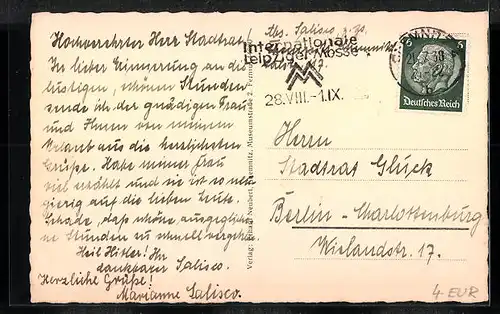 Hochverehrter Herr Stadtrat!
In lieber Erinnerung an die
lustigen, schönen Stunden
sende ich der gnädigen Frau
und Ihnen von meinem
Urlaub aus die herzlichsten
Grüße. Habe meiner Frau
viel erzählt und sie ist so neu
gierig auf die lieben Leute.
Schade, daß schöne, ausgeglich
ne Stunden so schnell vergehen.
Heil Hitler! Ihr
dankbarer Salisco.
Herzliche Grüße!
Marianne Salisco.
Abs. Salisco
Internationale
Leipziger Messe
28.VIII.-1.IX.
CHEMNITZ
6 6
Deutsches Reich
Herrn
Stadtrat Glück
Berlin-Charlottenburg
Wielandstr. 17.
4 EUR